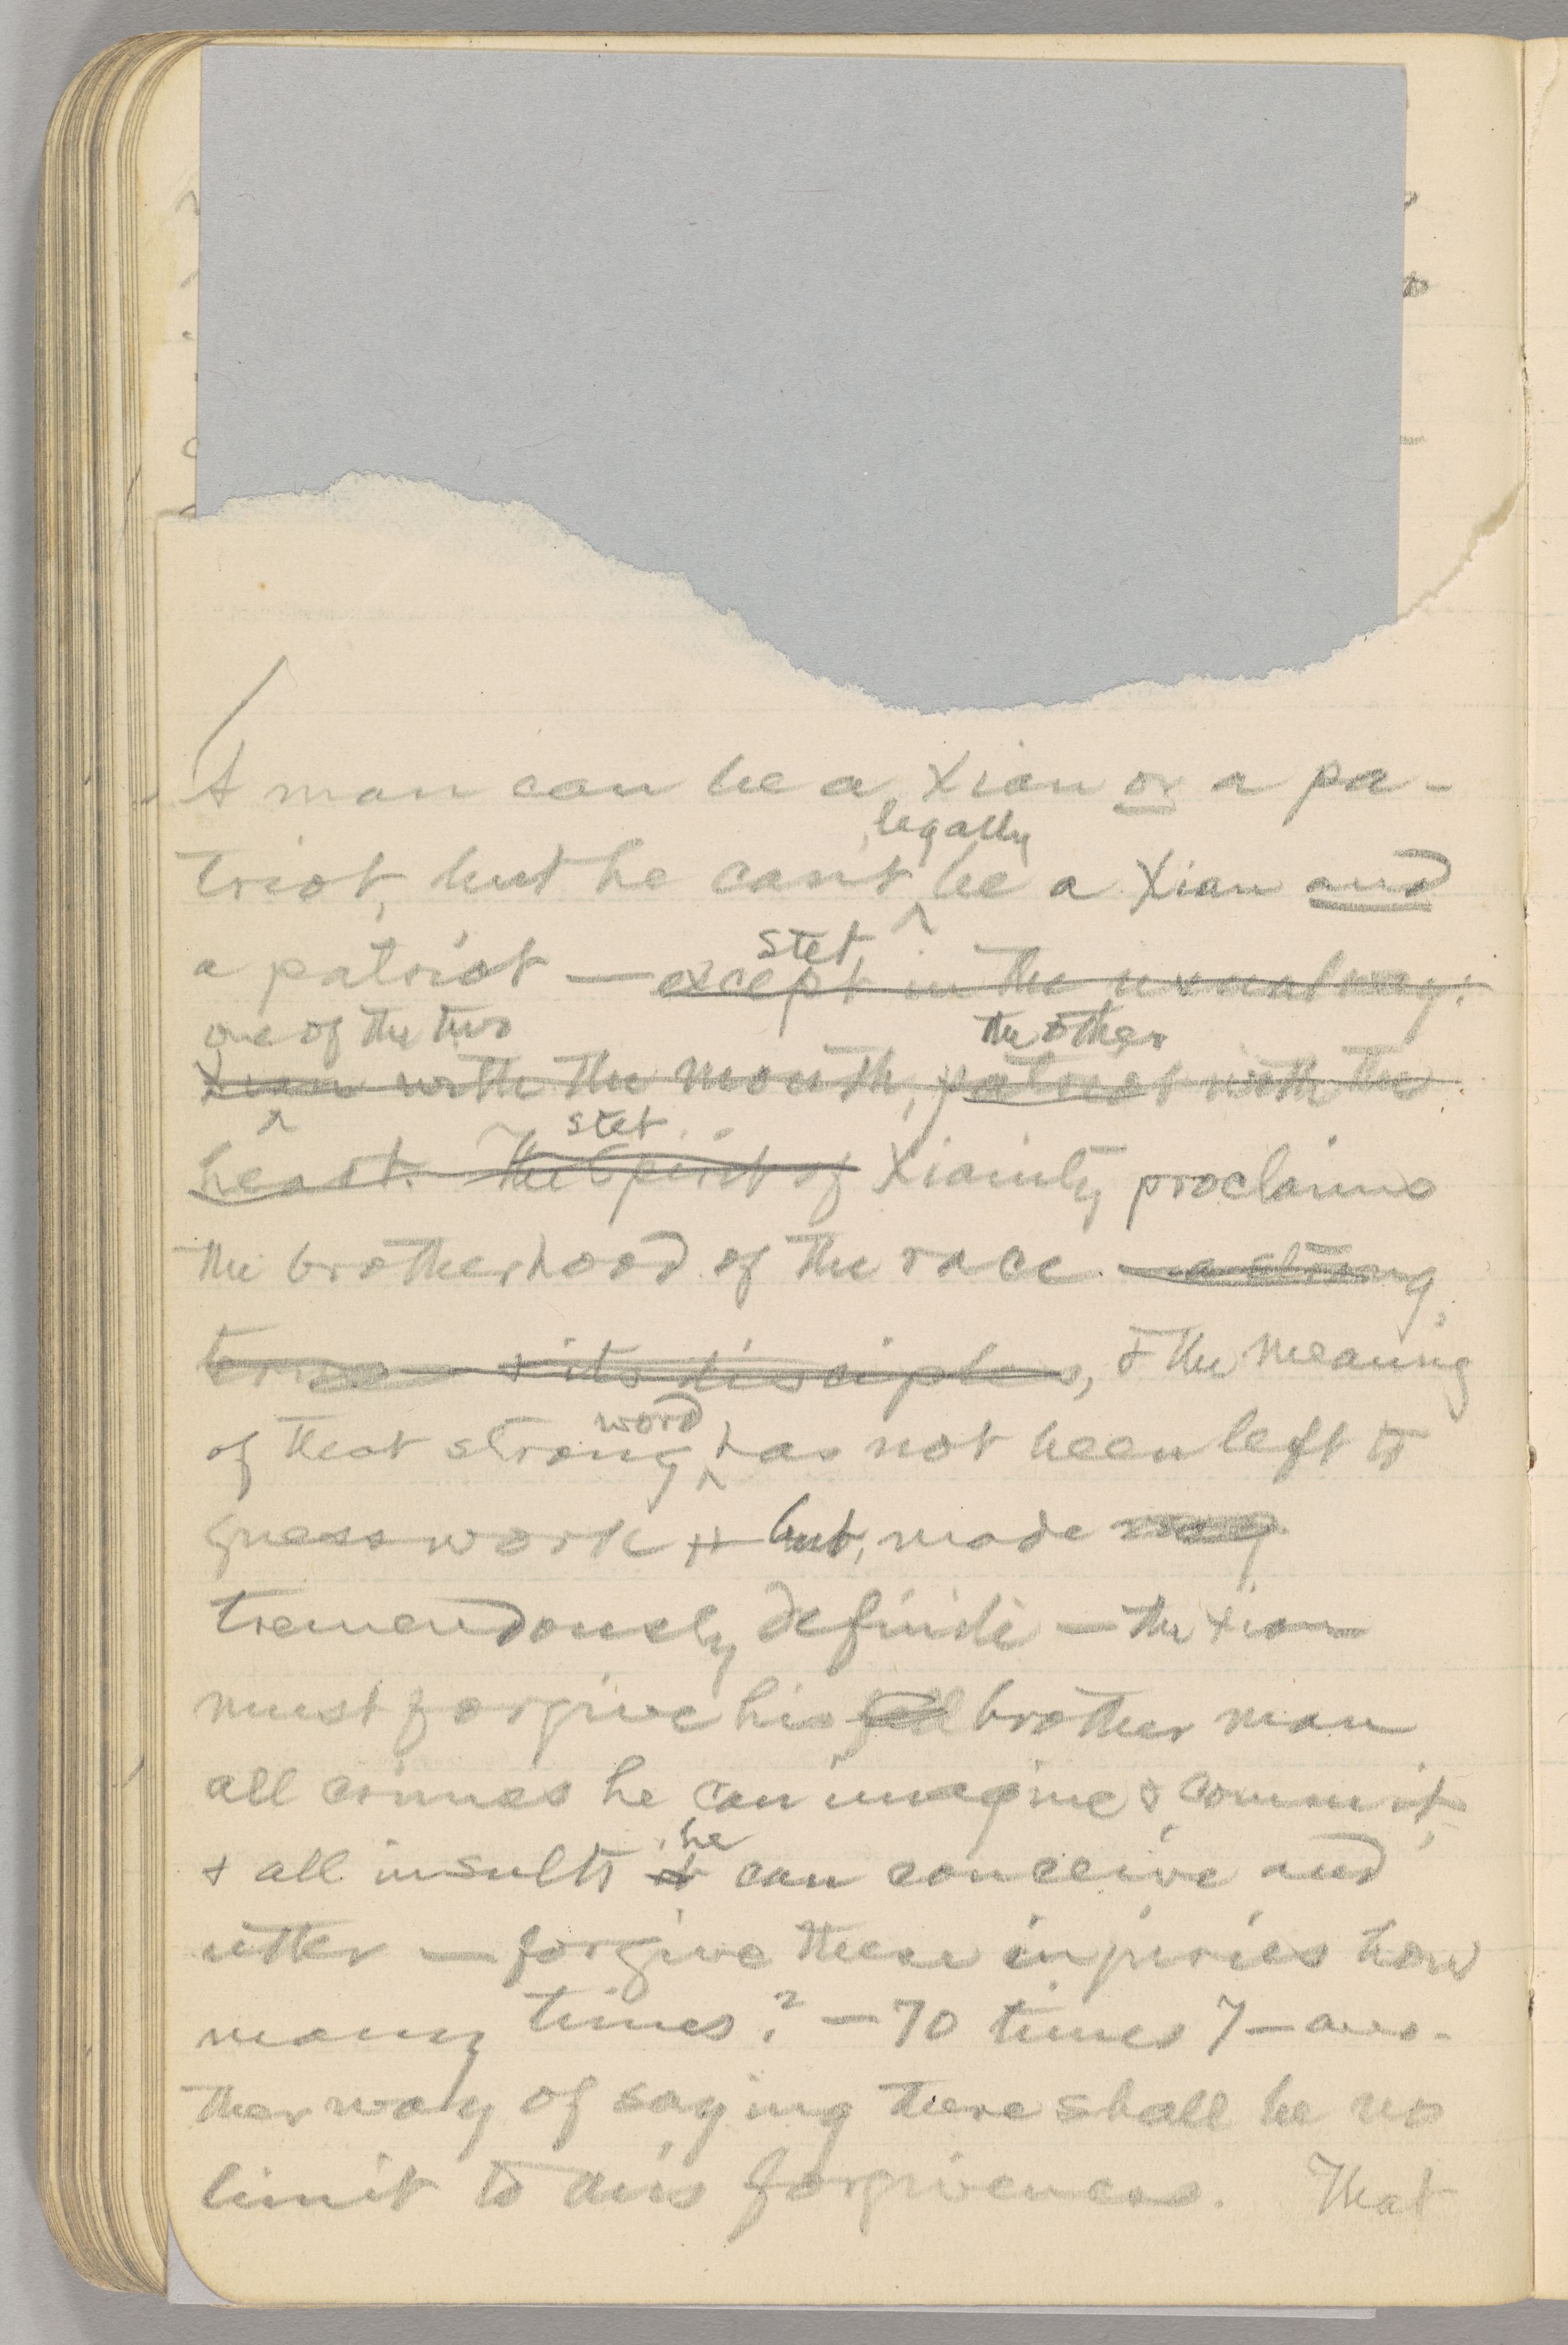 A man can be a Xian or a pa-
legally
triot, but he can't be a Xian and
stet
a patriot — except in the usual way:
one of the two the other
Xian with the mouth, patriot with the
stet
heart. The Spirit of Xianity proclaims
the brotherhood of the race — a strong
term & its disciples, & the meaning
word
of that strong has not been left to
guess work but, made
tremendously definite — the Xian
must forgive his brother man
all crimes he can imagine & commit,
he
& all insults can conceive and
utter — forgive these injuries how
many times? — 70 times 7 — ano-
ther way of saying there shall be no
limit to this forgiveness. That